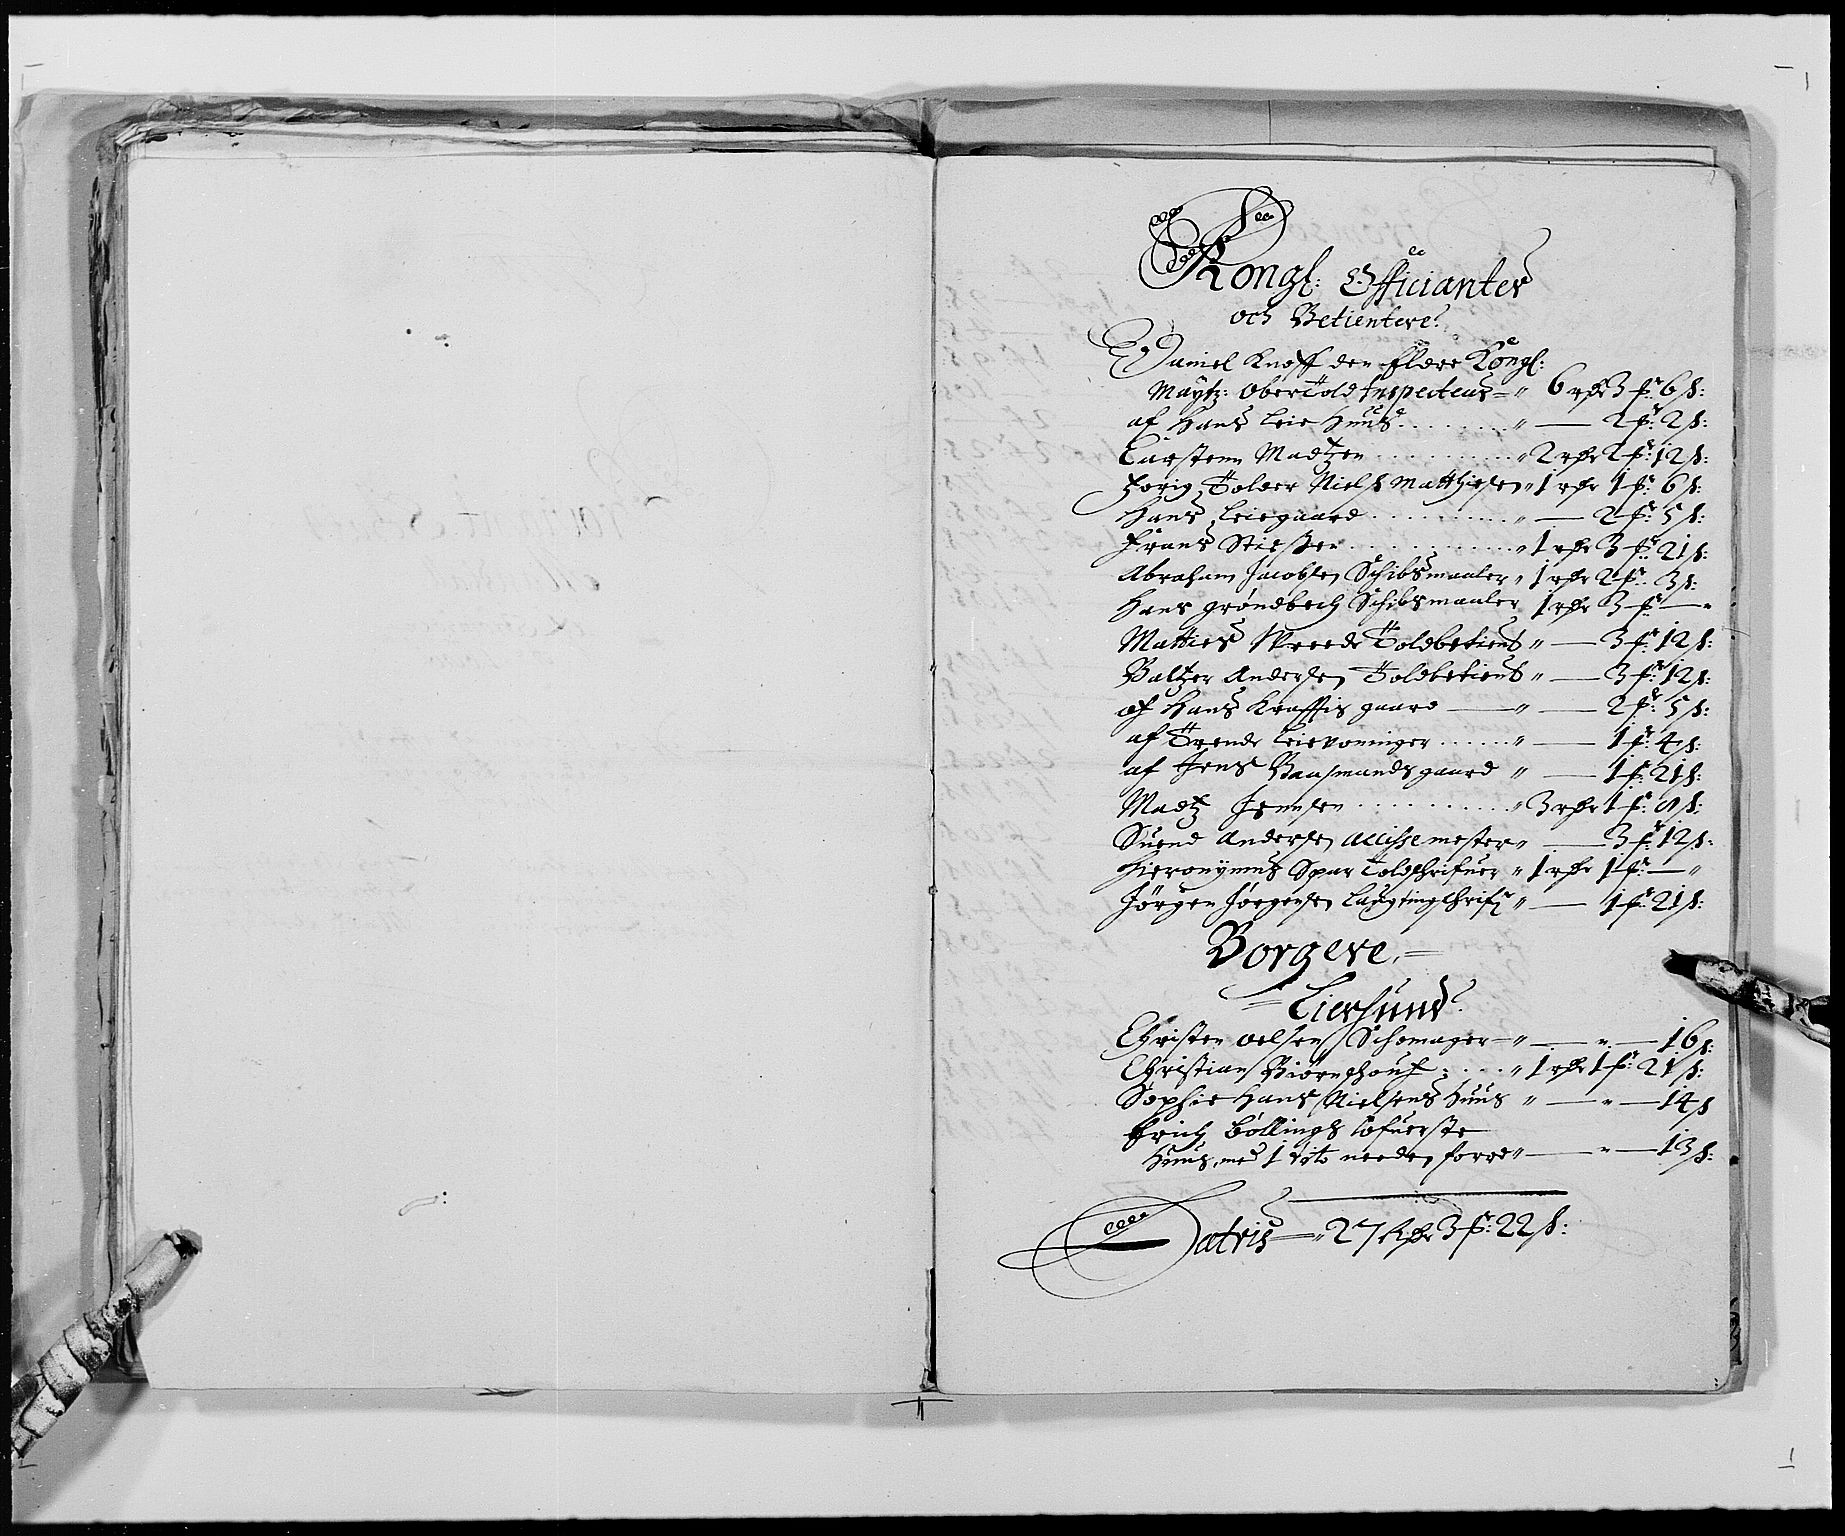 Kongl: Officianter
och Betientere.
Daniel Knoff den Eldre Kongl:
Maytz: Ober Told Inspecteur " 6 rdr 3 ſr: 6 ß:
af Hans Leie Huus . . . . . . " — 2 ſr: 2 ß:
Carsten Madtzen . . . . . . " 2 rdr 2 ſr: 12 ß:
Forig Tolder Niels Matthiesen " 1 rdr 1 ſr: 6 ß:
Hans Leiegaard . . . . . . " — 2 ſr: 5 ß:
Frans . . . . . . " 1 rdr 3 ſr: 21 ß:
Abraham Jacobsen Schibsmaaler " 1 rdr 2 ſr: 3 ß:
Hans Grøndbech Schibsmaaler 1 rdr 3 ſr: — "
Matties Toldbetient " — 3 ſr: 12 ß:
Baltzer Andersen Toldbetient " — 3 ſr: 12 ß:
af Hans Kraftis gaard — " — 2 ſr: 5 ß:
af Trende Leievoninger . . . . . " — 1 ſr: 4 ß:
af Jens Baasmands gaard " — 1 ſr: 21 ß:
Madtz Jensen . . . . . . " 3 rdr 1 ſr: 9 ß:
Suend Andersen Accissemester " — 3 ſr: 12 ß:
Hieronymus Spar Toldschrifuer " 1 rdr 1 ſr: — "
Jørgen Jørgensen Laugtingschrifr " — 1 ſr: 21 ß:
Borgere. =
= Liersund
Christen Oelsen Schomager — " — " — 16 ß:
Christian Biørnshouf : . . . " 1 rdr 1 ſr: 21 ß:
Sophie Hans Nielsens Huus " — " — 14 ß
Erich Bøllings øfuerste
Huus, med 1 dito neden forre " — " — 13 ß:
Latris — " 27 Rdr 3 ſr: 22 ß: